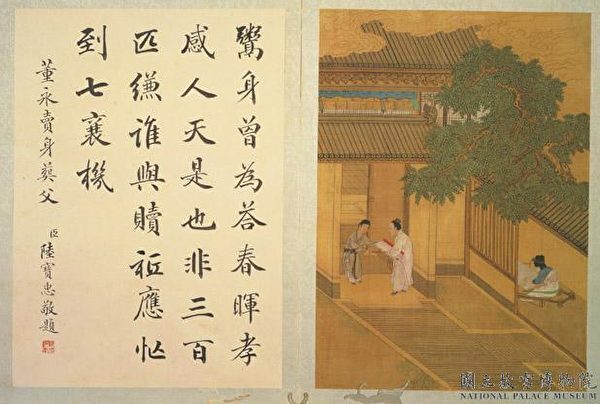 鬻身曾為荅春暉孝
感人天是也非三百
匹縑誰與贖祗應忙
到七襄機
董永賣身葬父
臣陸寶忠敬題
國立故宮博物院
NATIONAL PALACE MUSEUM